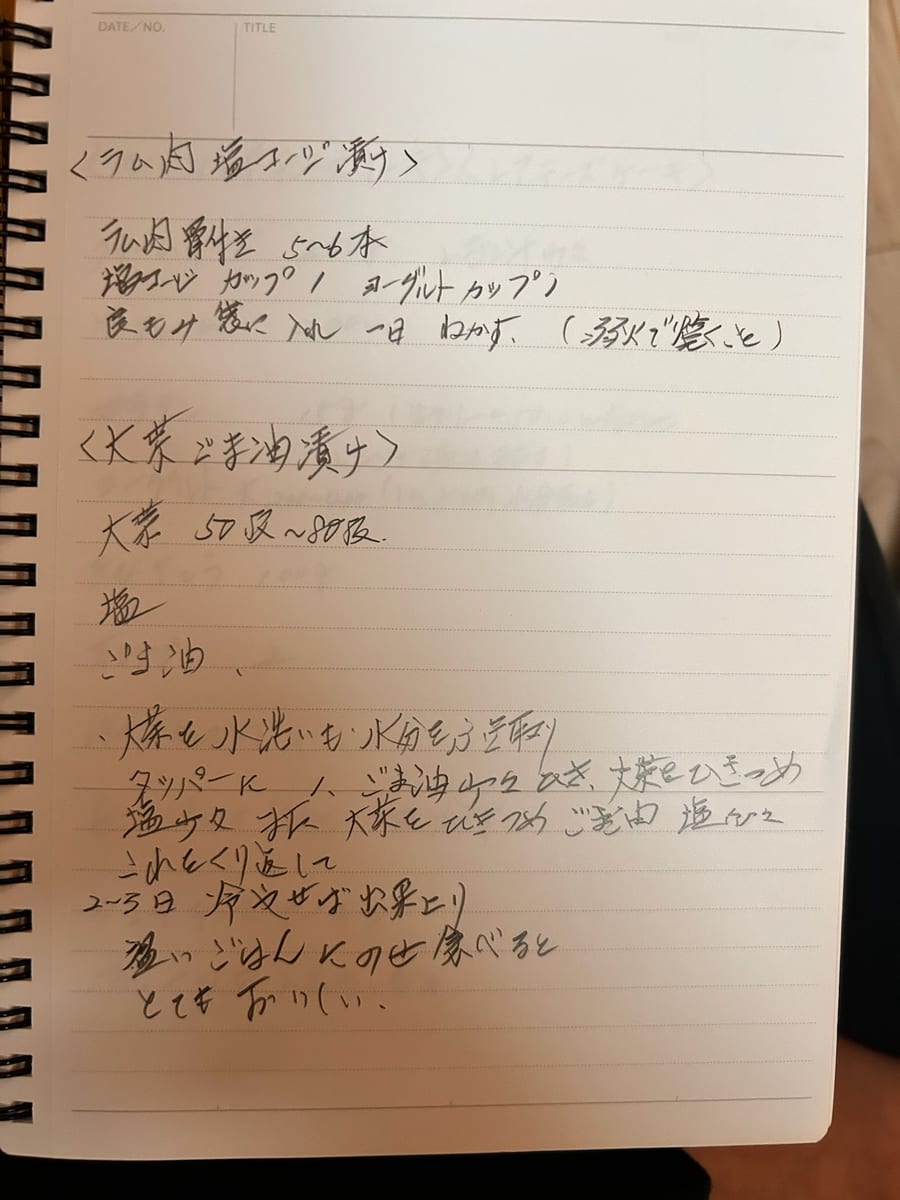 DATE/NO. TITLE
〈ラム肉 塩コージ漬け〉
ラム肉骨付き 5〜6本
塩コージ カップ1 ヨーグルトカップ1
良もみ 袋に 入れ 一日 ねかす. (弱火で焼くこと)
〈大葉ごま油漬け〉
大葉 50枚〜80枚.
塩
ごま油、
・大葉を水洗いも 水分をふき取り
タッパーに 1、ごま油少々 ひき、大葉をひきつめ
塩少々 また 大葉を ひきつめ ごま油 塩少々
これをくり返して
2〜3日 冷やせば 出来上り
温いごはんにのせ 食べると
とても おいしい.